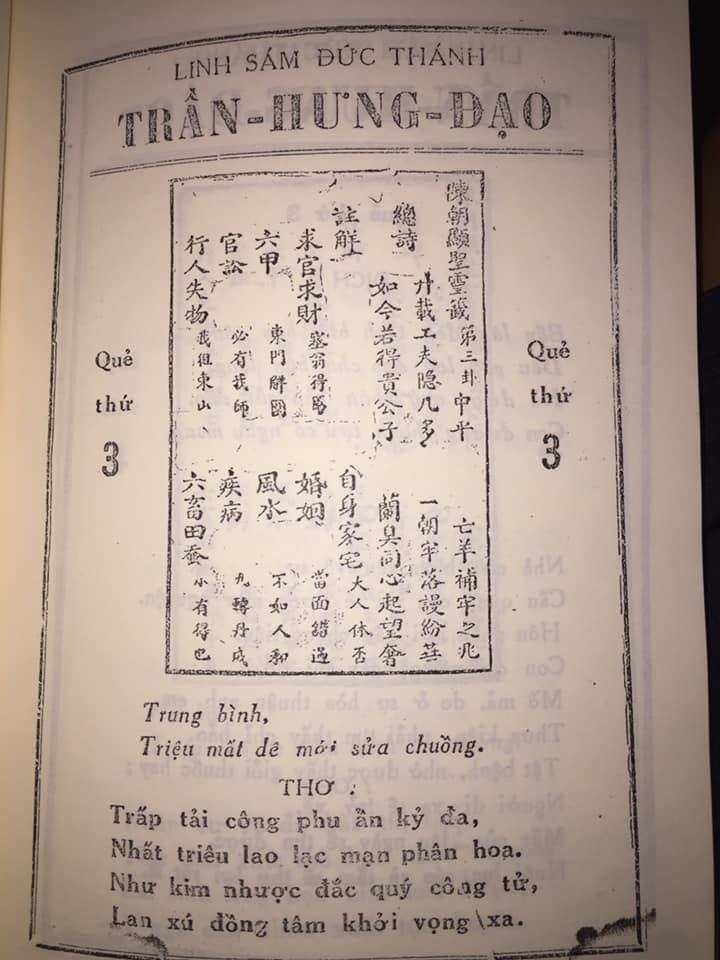 LINH SÁM ĐỨC THÁNH
TRẦN-HƯNG-ĐẠO
Quẻ
thứ
3
陳朝顯聖靈籤第三卦中平 亡羊補牢之兆
總詩
廾載工夫隐几多 一朝牢落謾紛華
如今若得貴公子 蘭臭同心起望奢
註解 自身家宅 大人休否
求官求財 塞翁得馬 婚姻 當面錯過
六甲 東門 風水 不如人和
官訟 必有我師 疾病 九轉丹成
行人失物 我徂東山 六畜田蚕 小有得也
Quẻ
thứ
3
Trung bình,
Triệu mất dê mới sửa chuồng.
THƠ :
Trấp tải công phu ẩn kỷ đa,
Nhất triêu lao lạc mạn phân hoa.
Như kim nhược đắc quý công tử,
Lan xú đồng tâm khởi vọng xa.